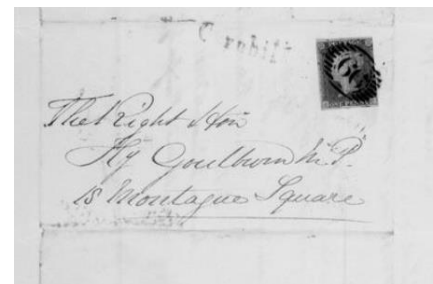 Cornhill
The Right Hon
Hy Goulburn M.P.
15 Montague Square